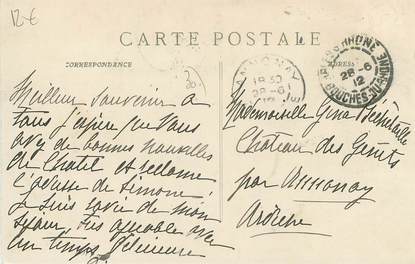 12-€
CARTE POSTALE
CORRESPONDANCE
ADRESSE
ANNONAY
1930
28-6
BOUCHES DU RHONE
28-6
12
Meilleur souvenir a
Tous j'espère que Vous
avez de bonnes nouvelles
de Chatel et
l'adresse de Simone
je suis ravie de mon
séjour, très agréable avec
un temps
Mademoiselle Gina Béchetoille
Château des Gouts
par Annonay
Ardèche